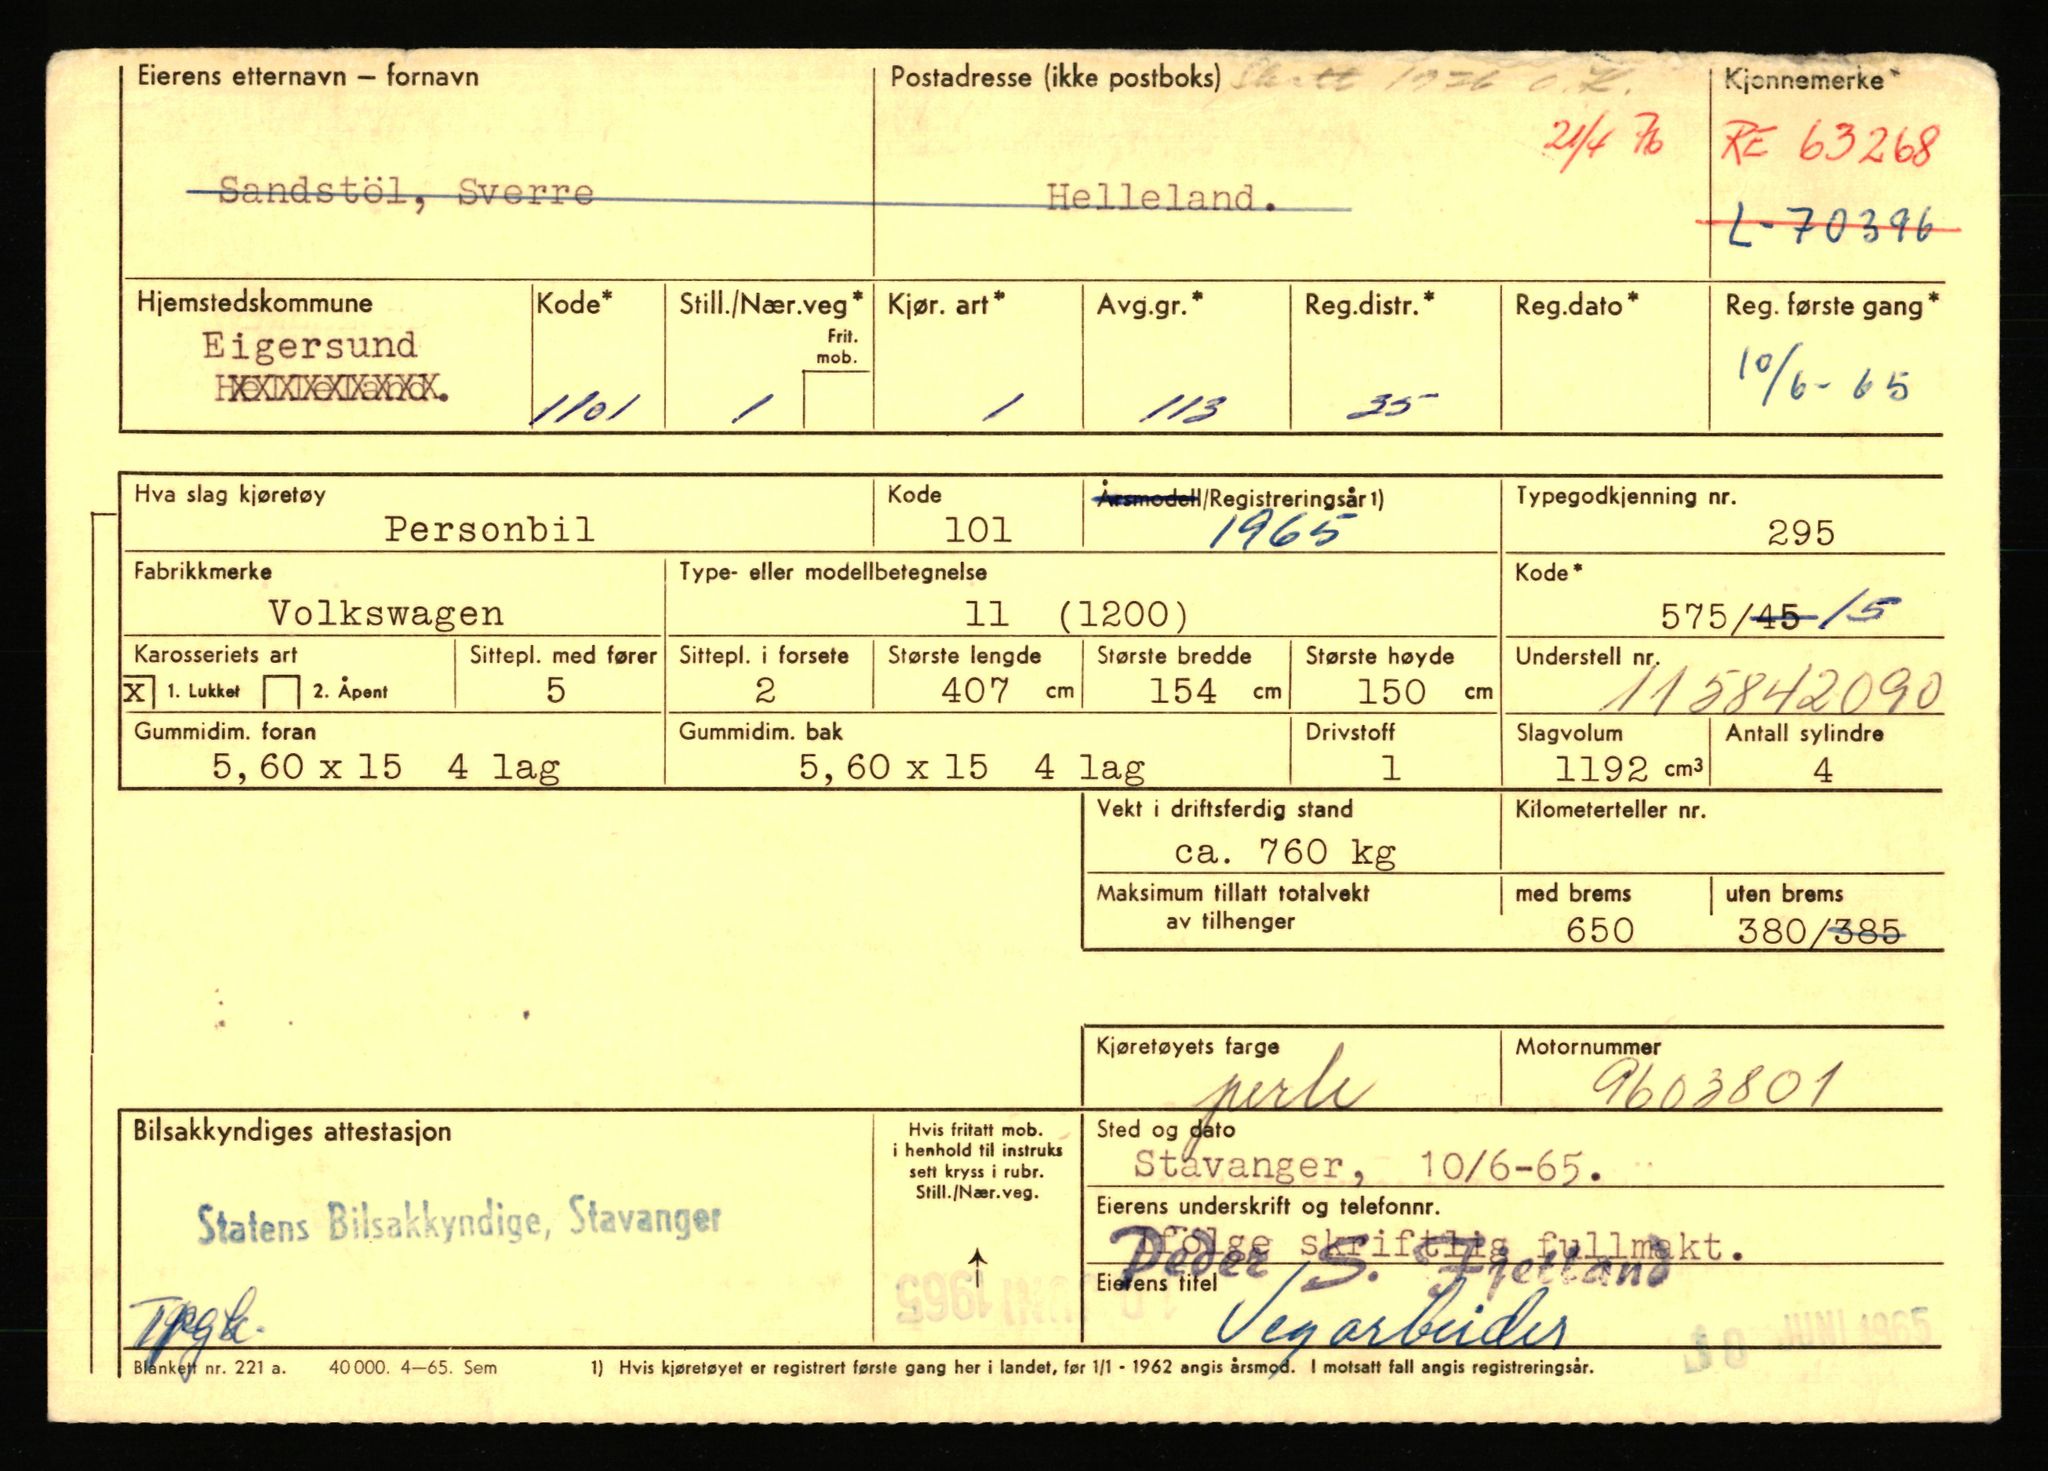 Eierens etternavn – fornavn Postadresse (ikke postboks) Skatt 1976 O.K. Kjennemerke*
21/4 76 RE 63268
Sandstöl, Sverre Helleland.
L-70396
Hjemstedskommune Kode* Still./Nær.veg* Kjør. art* Avg.gr.* Reg.distr.* Reg.dato* Reg. første gang*
Frit.
mob.
Eigersund
Helleland. 1101 1 1 113 35 10/6-65
Hva slag kjøretøy Kode Årsmodell/Registreringsår1) Typegodkjenning nr.
Personbil 101 1965 295
Fabrikkmerke Type- eller modellbetegnelse Kode*
Volkswagen 11 (1200) 575/45 15
Karosseriets art Sittepl. med fører Sittepl. i forsete Største lengde Største bredde Største høyde Understell nr.
X 1. Lukket 2. Åpent 5 2 407 cm 154 cm 150 cm 115842090
Gummidim. foran Gummidim. bak Drivstoff Slagvolum Antall sylindre
5,60 x 15 4 lag 5,60 x 15 4 lag 1 1192 cm3 4
Vekt i driftsferdig stand Kilometerteller nr.
ca. 760 kg
Maksimum tillatt totalvekt med brems uten brems
av tilhenger 650 380/385
Kjøretøyets farge Motornummer
perle 9603801
Bilsakkyndiges attestasjon Hvis fritatt mob.
i henhold til instruks
sett kryss i rubr.
Still./Nær.veg.
Sted og dato
Stavanger, 10/6-65.
Statens Bilsakkyndige, Stavanger
Eierens underskrift og telefonnr.
ifølge skriftlig fullmakt.
Peder S. Fjelland
Eierens titel
Vegarbeider
10 JUNI 1965
10 JUNI 1965
Blankett nr. 221 a. 40 000. 4–65. Sem 1) Hvis kjøretøyet er registrert første gang her i landet, før 1/1 - 1962 angis årsmod. I motsatt fall angis registreringsår.